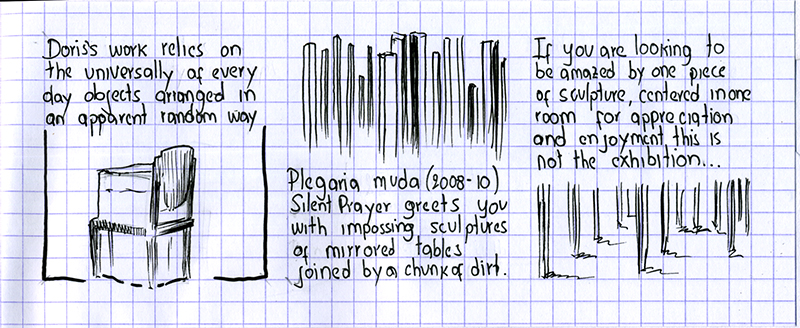 Doris's work relies on
the universally of every
day objects arranged in
an apparent random way
Plegaria muda (2008-10)
Silent Prayer greets you
with impossing sculptures
of mirrored tables
joined by a chunk of dirt.
If you are looking to
be amazed by one piece
of sculpture, centered in one
room for appreciation
and enjoyment this is
not the exhibition...